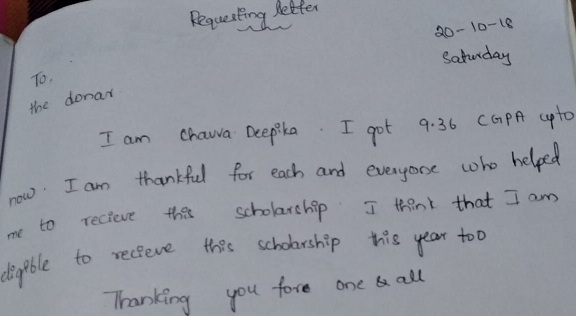 Requesting letter
20-10-18
Saturday
To,
the donar
I am Chavva Deepika. I got 9.36 CGPA upto
now. I am thankful for each and everyone who helped
me to recieve this scholarship. I think that I am
eligible to recieve this scholarship this year too
Thanking you fore one & all